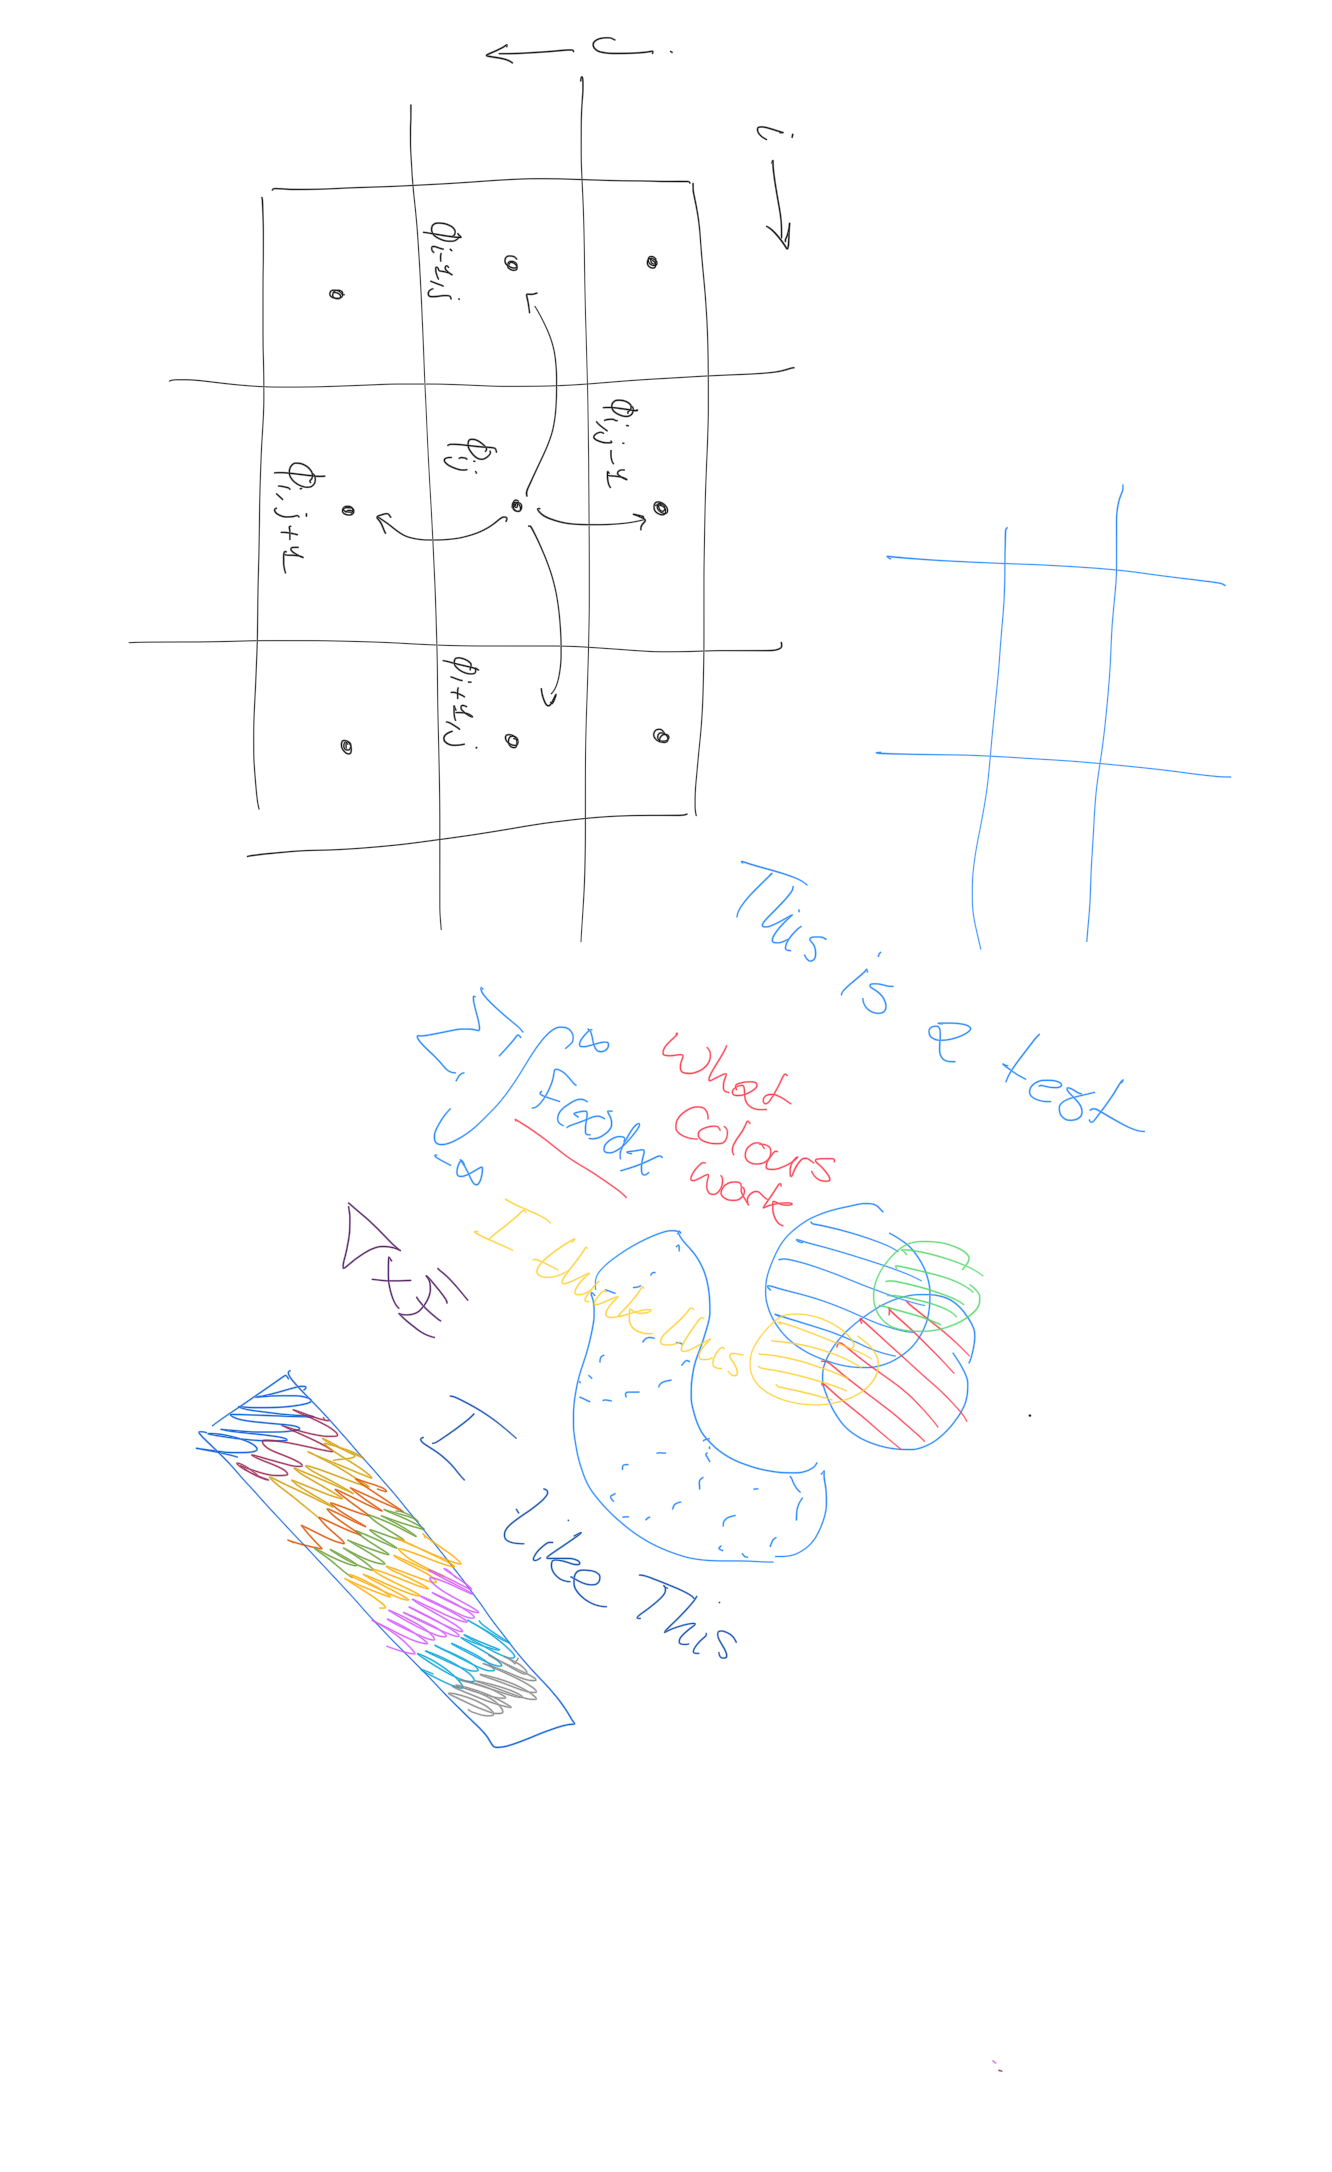 j
i
ϕi,j-1
ϕi-1,j
ϕij
ϕi+1,j
ϕi,j+1
This is a test
∑∫ -∞ ∞ F(x)dx
What
Colours
work
I think this
∇×
I Like This